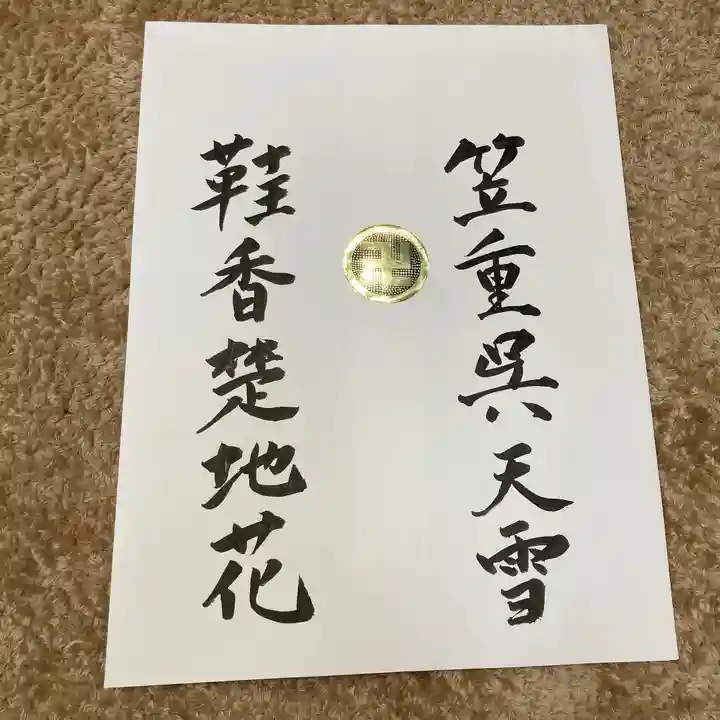 笠重呉天雪
鞋香楚地花